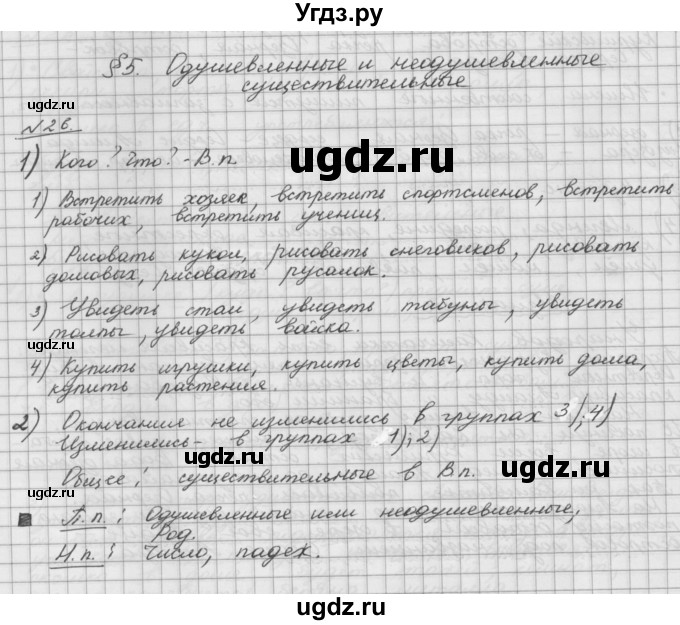 Угдз.ру
§5. Одушевленные и неодушевленные
существительные
ugdz.ru
№26.
1) Кого? Что? - В.п.
ugdz.ru
1) Встретить хозяек, встретить спортсменов, встретить
рабочих, встретить учениц.
2) Рисовать кукол, рисовать снеговиков, рисовать
домовых, рисовать русалок.
3) Увидеть стаи, увидеть табуны, увидеть
толпы, увидеть войска.
ugdz.ru
4) Купить игрушки, купить цветы, купить дома,
купить растения.
2) Окончания не изменились в группах 3), 4)
Изменились - в группах 1), 2)
ugdz.ru
Общее: существительные в В.п.
ugdz.ru
П.п.: Одушевленные или неодушевленные,
Род.
Н.п.: Число, падеж.
ugdz.ru
ugdz.ru